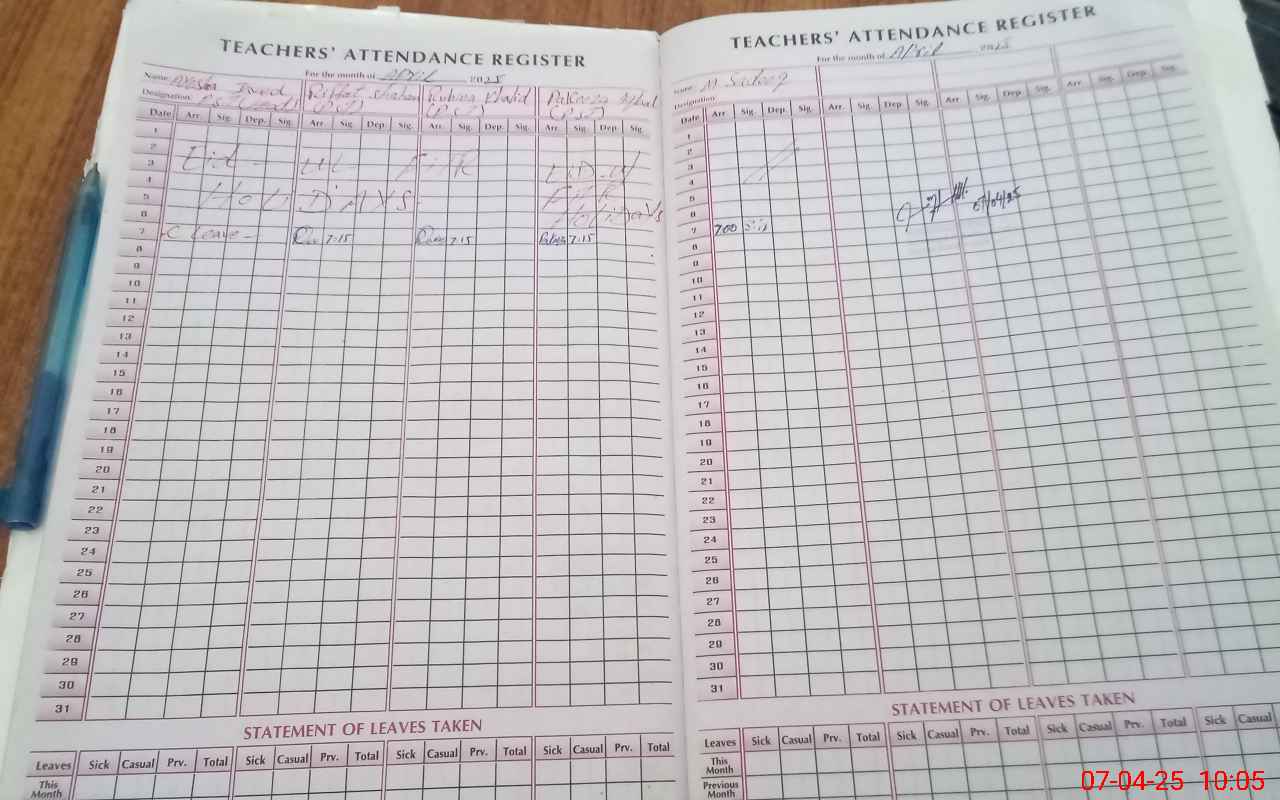 TEACHERS' ATTENDANCE REGISTER
For the month of April 2025
Name Riffat Shaheen Rubina Khalid Pakeeza Iqbal
Designation (PST) (PST)
Date Arr. Sig. Dep. Sig. Arr. Sig. Dep. Sig. Arr. Sig. Dep. Sig. Arr. Sig. Dep. Sig.
1
2
3 Eid UL FITR EID UL
4
5 HOLIDAYS FITR
6 HOLIDAYS
7 C Leave 7:15 7:15 7:15
8
9
10
11
12
13
14
15
16
17
18
19
20
21
22
23
24
25
26
27
28
29
30
31
STATEMENT OF LEAVES TAKEN
Leaves Sick Casual Prv. Total Sick Casual Prv. Total Sick Casual Prv. Total Sick Casual Prv. Total
This Month
TEACHERS' ATTENDANCE REGISTER
For the month of April 2025
Name M Sadeeq
Designation
Date Arr Sig. Dep. Sig. Arr. Sig. Dep Sig. Arr Sig. Dep. Sig. Arr. Sig. Dep. Sig.
1
2
3
4
5
6 07/04/25
7 7:00
8
9
10
11
12
13
14
15
16
17
18
19
20
21
22
23
24
25
26
27
28
29
30
31
STATEMENT OF LEAVES TAKEN
Leaves Sick Casual Prv. Total Sick Casual Prv. Total Sick Casual Prv. Total Sick Casual
This Month
Previous Month
07-04-25 10:05